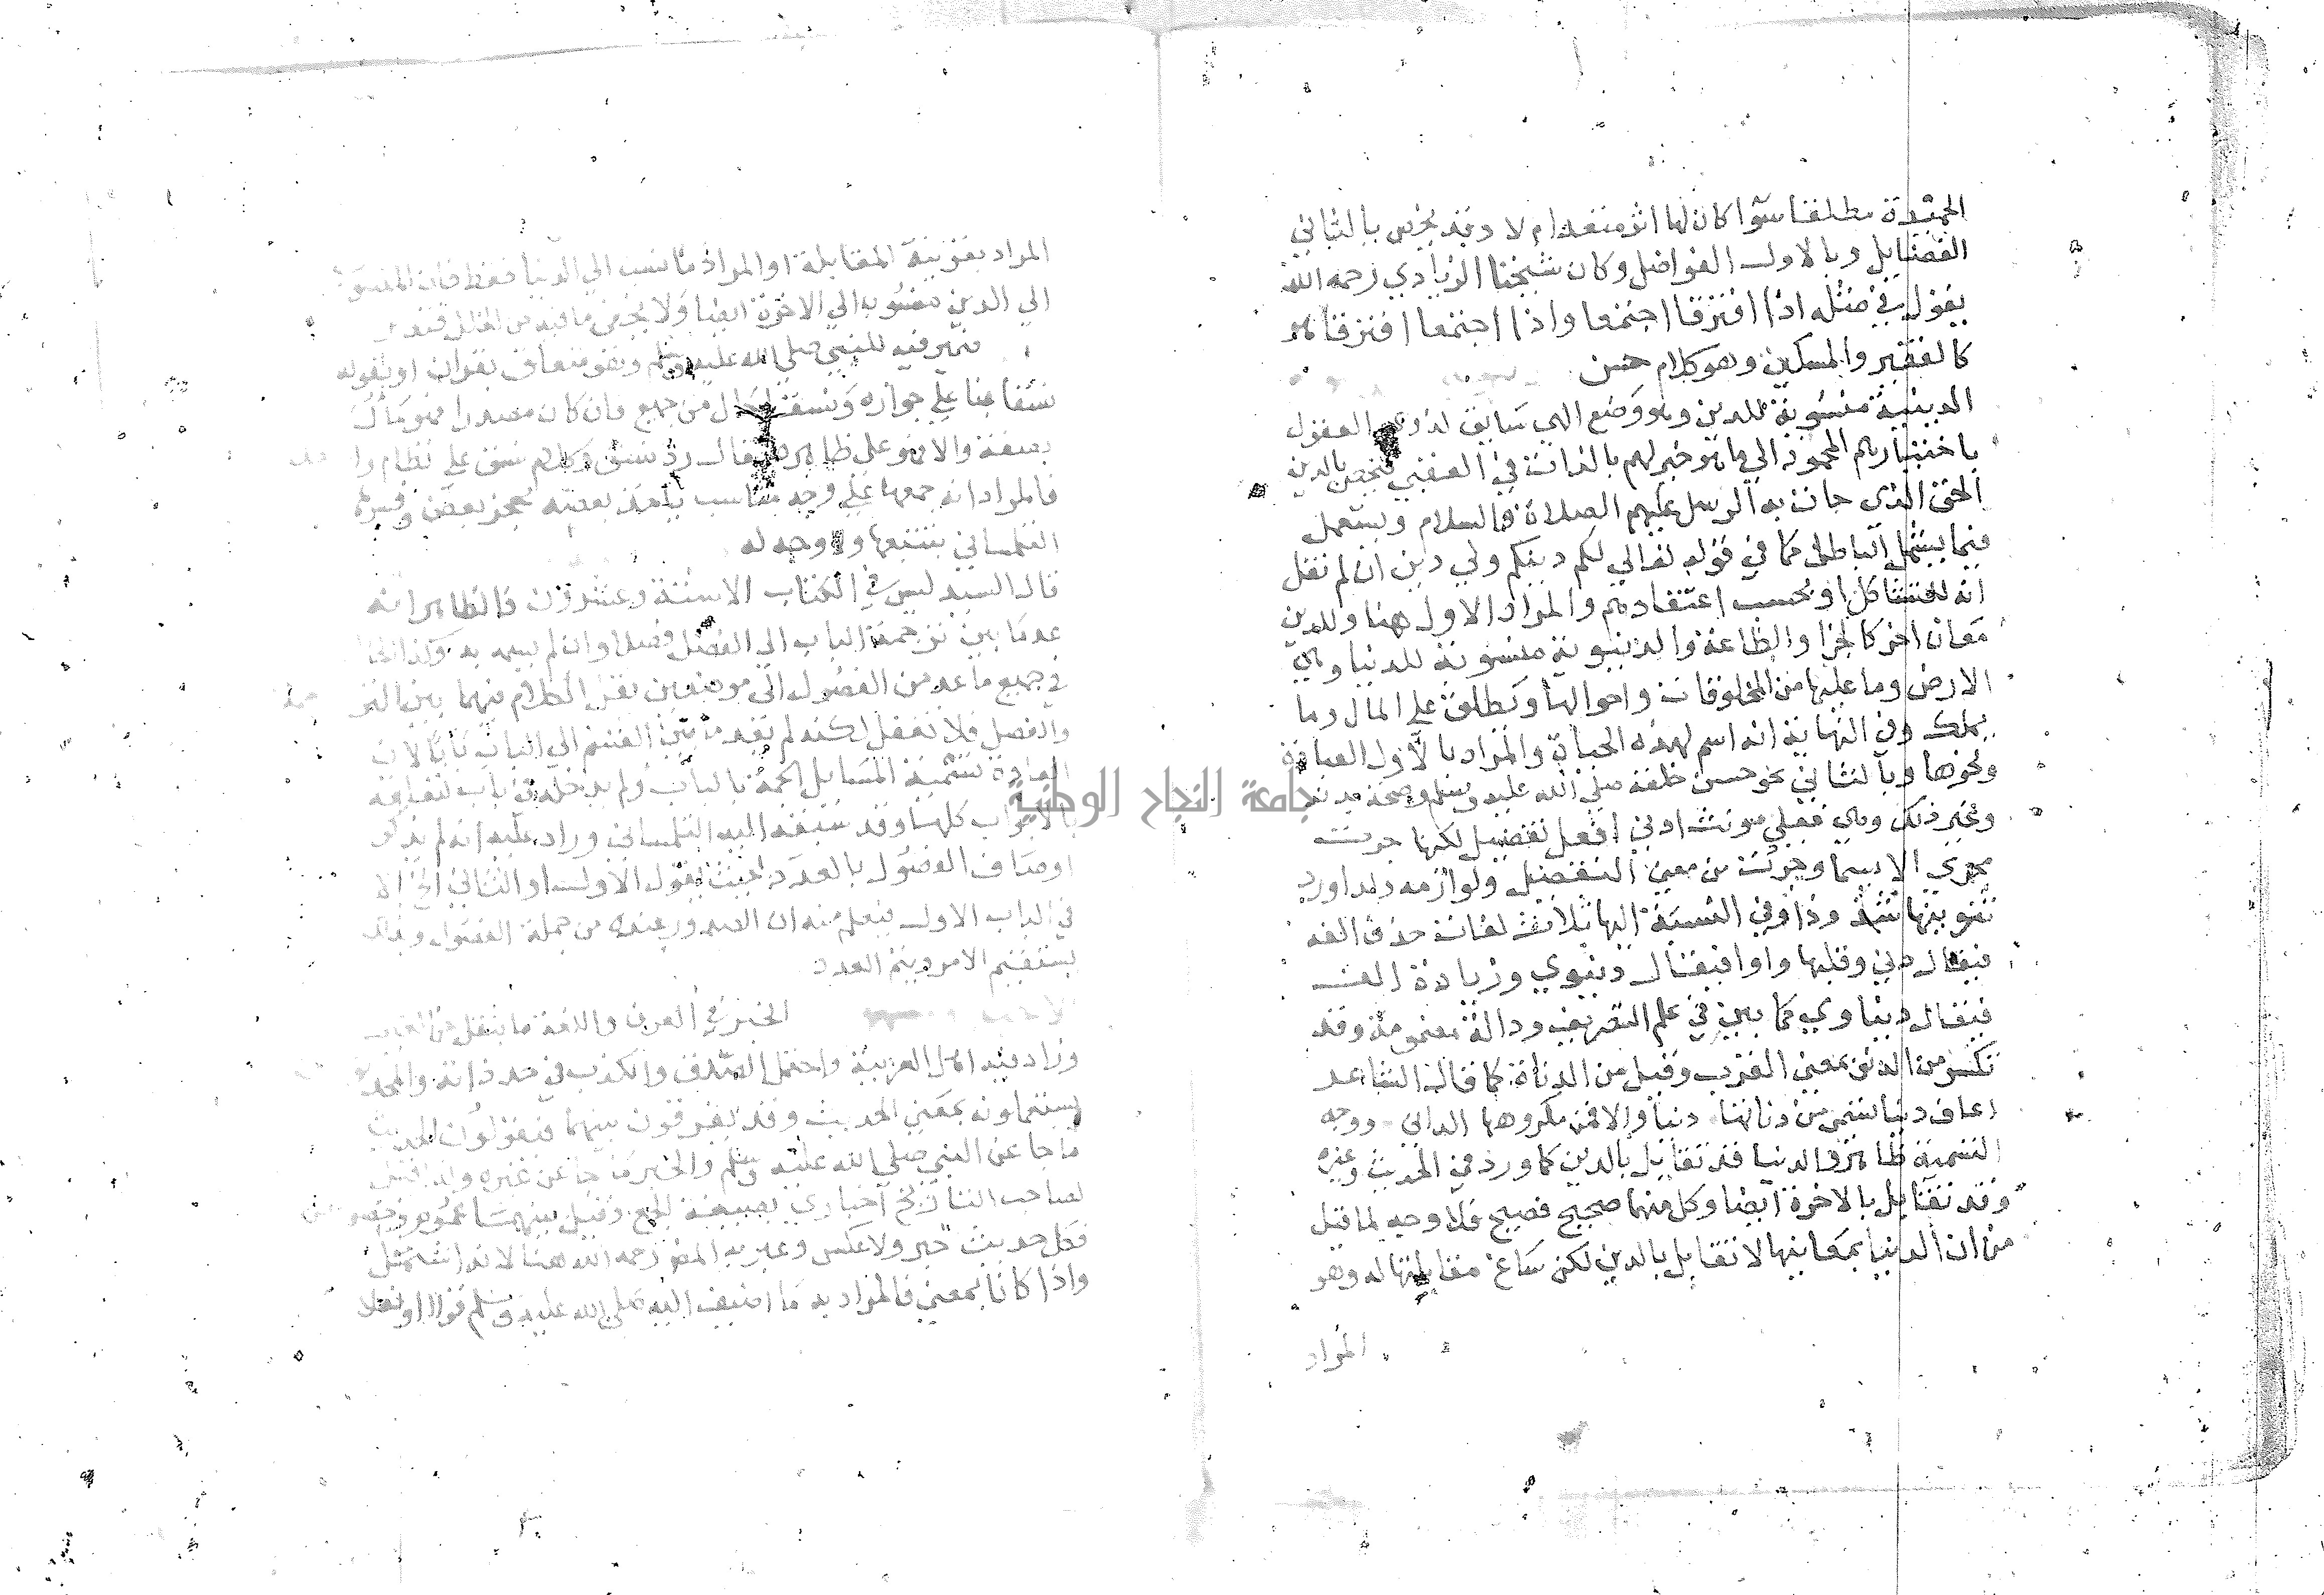 الحميدة مطلقا سوا كان لها اثر متعد ام لا وقد يخص بالثاني
الفضايل وبالاول الفواضل وكان شيخنا الزيادي رحمه الله
يقول في مثله اذا افترقا اجتمعا واذا اجتمعا افترقا
كالفقير والمسكين وهو كلام حسن
الدينية منسوبة للدين وهو وضع الهي سايق لذوي العقول
باختيارهم المحمود الي ما هو خير لهم بالذات في العقبي بالدين
الحق الذي جات به الرسل عليهم الصلاة والسلام ويستعمل
فيما يشمل الباطل كما في قوله تعالي لكم دينكم ولي دين ان لم نقل
انه للتشاكل او بحسب اعتقادهم والمراد الاول هنا وللدين
معان اخر كالجزا والطاعة والدنيوية منسوبة للدنيا وهي
الارض وما عليها من المخلوقات واحوالها وتطلق علي المال وما
يملك وفي النهاية انه اسم لهذه الحياة والمراد بالاول
ونحوها وبالثاني نحو حسن خلقه صلي الله عليه وسلم وصحة بدنه
وغير ذلك وهي فعلي مونث ادني افعل تفضيل لكنها جرت
مجري الاسما وجردت من معني التفضيل ولوازمه ولذا ورد
تنوينها شذوذا وفي النسبة اليها ثلاث لغات حذف الفه
فيقال دني وقلبها واوا فيقال دنيوي وزيادة الف
فيقال دنياوي كما بين في علم التصريف ودالة مضمومة وقد
تكسر من الدنو بمعني القرب وقيل من الدناة كما قال الشاعر
اعاف دنيا تسمي من دنائتها دنيا والا فمن مكروهها الداني ووجه
التسمية ظاهر والدنيا قد تقابل بالدين كما ورد في الحديث وغيره
وقد تقابل بالاخرة ايضا وكل منهما صحيح فصيح فلا وجه لما قيل
من ان الدنيا بمعانيها لا تقابل بالدين لكن ساغ مقابلتها له وهو
المراد
المراد بقرينة المقابلة او المراد ما نسب الي الدنيا فقط فان المنسوب
الي الدين منسوب الي الاخرة ايضا ولا يخفي ما فيه من الخلل
ضمير فيه للنبي صلي الله عليه وسلم وهو متعلق بقران او بقوله
نسقا بنا علي جوازه ونسقا حال من جميع فان كان مصدرا فهو مأول
بصفة والا فهو علي ظاهره يقال در نسق وكلام نسق علي نظام واحد
فالمراد انه جمعها علي وجه مناسب ياخذ بعضه بحجز بعض وفسره
التلمساني بتتبعها ولا وجه له
قال السيد ليس في الكتاب الا ستة وعشرون فالظاهر انه
عد ما بين ترجمة الباب الي الفصل فصلا وان لم يسمه به وكذا
في جميع ما عد من الفصول الي موضعين يقع الكلام فيهما بين
والفصل فلا تغفل لكنه لم يعد ما بين القسم الي الباب بابا لان
العادة تسمية المسايل الجمة بالباب ولم يدخله في باب لتعلقه
بالابواب كلها وقد سبقه اليه التلمساني وزاد عليه انه لم يذكر
اوصاف الفصول بالعدد بحيث يقول الاول والثاني الخ الا
في الباب الاول فيعلم منه ان الصدور عنده من جملة الفصول وبذلك
يستقيم الامر ويتم العدد
الخبر في العرف واللغة ما ينقل عن الغير
وزاد فيه اهل العربية واحتمل الصدق والكذب في حد ذاته
يستعملونه بمعني الحديث وقد يفرقون بينهما فيقولون الحديث
ما جا عن النبي صلي الله عليه وسلم والخبر ما جا عن غيره ولذا قيل
لصاحب التاريخ اخباري بصيغة الجمع وقيل بينهما عموم وخصوص
فكل حديث خبر ولا عكس وعبر به المص رحمه الله هنا لانه اشمل
واذا كانا بمعني فالمراد به ما اضيف اليه صلي الله عليه وسلم قولا او فعلا
جامعة النجاح الوطنية